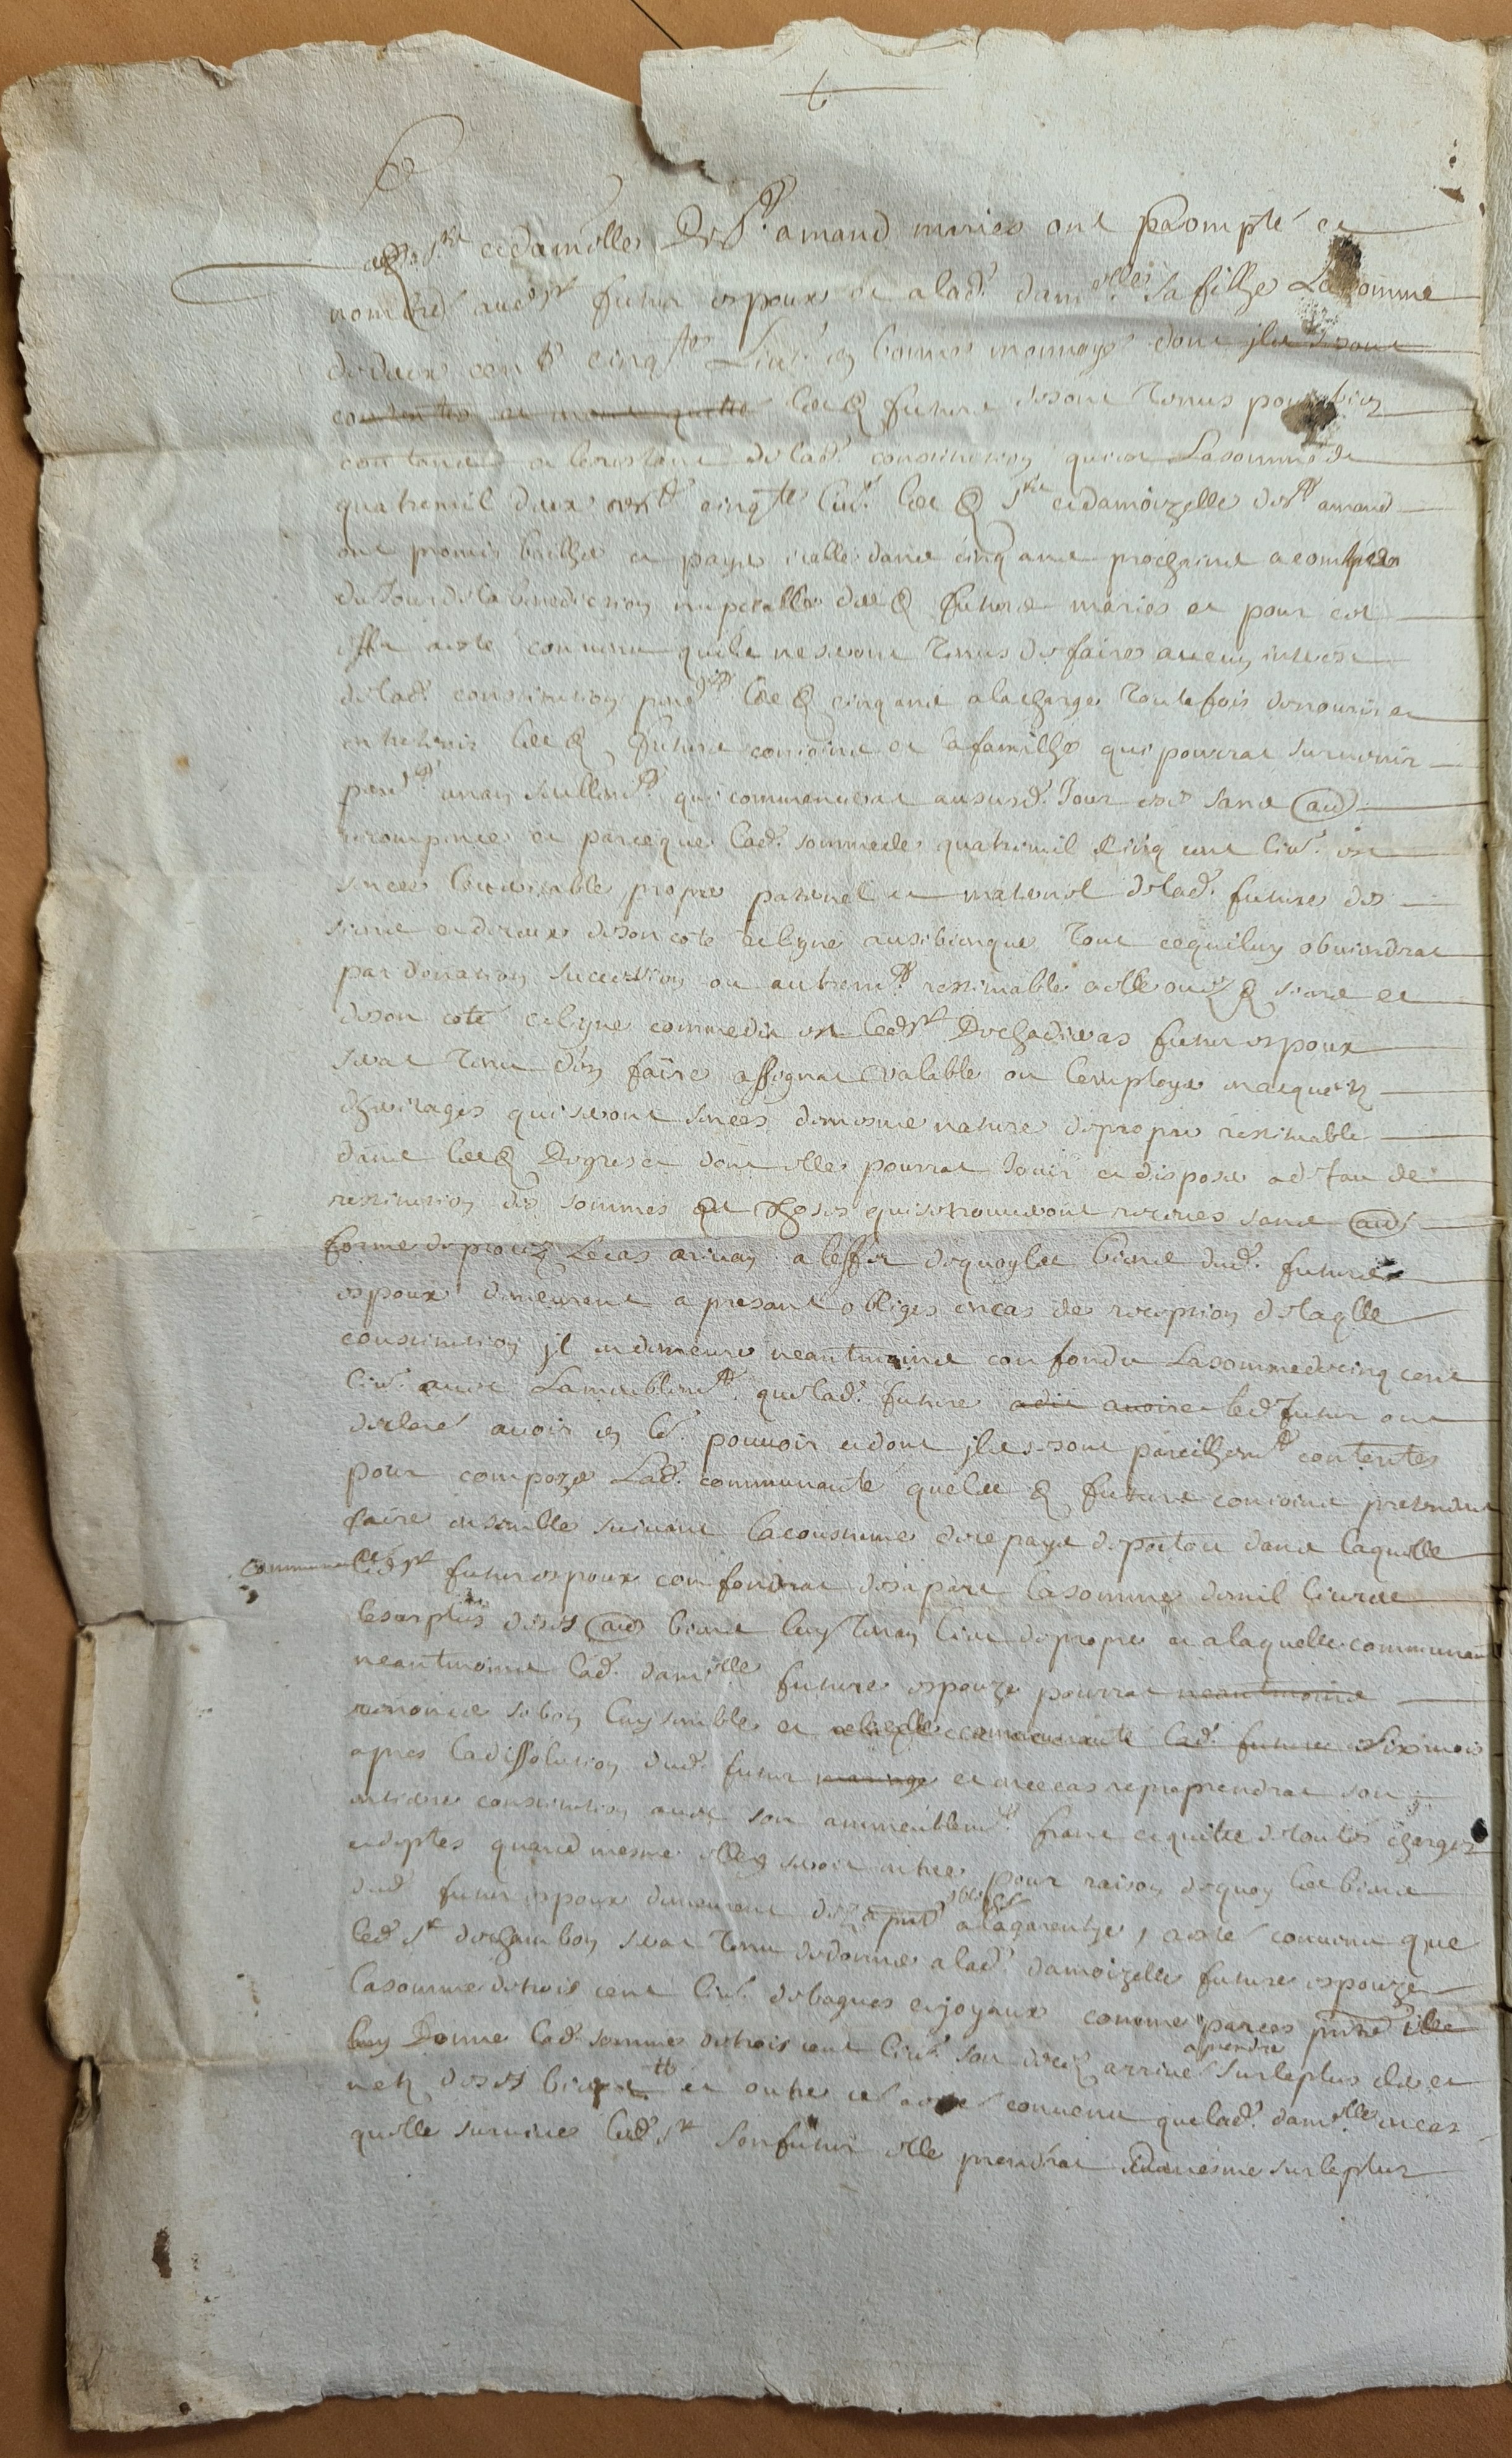 sr et damoizelle de St amand mariés ont p compté et
nombré aud sr futur espoux et a lad. damoizelle sa fille La somme
de deux cents cinqte Livs en bonne monnoye dont ils se sont
contentés et quitté les futurs se sont tenus pour bien
contans et le restant de lad. constitution qui est La somme de
quatre mil deux cents cinqte livs les sr et damoizelle de St amand
ont promis bailler et payer icelle dans cinq ans prochains a compter
du Jour de la benediction nuptialle des futurs mariés et pour cet
effet a esté convenu quils ne seront tenus de faire aucun interest
de lad. constitution pendt les cinq ans a la charge toutefois de nourir et
entretenir les futurs conjoints et la famille qui pourrat survenir
pendt un an seullemt qui commencerat au susd. Jour et sans aud
recompence et parce que lad. somme de quatre mil cinq cent livs est
sencée le veritable propre paternel et maternel de lad. future des
siens et de ceux de son coté et ligne ausi bien que tout ce qui luy obviendrat
par donation succession ou autremt restituable a elle aux siens et
de son coté et ligne comme dit est led sr Dechadieras futur espoux
serat tenu d'en faire assignat vallable ou l'employer en acquets
dheritages qui seront sencés de mesme nature de propre restituable
dans les Degres et dont elle pourrat Jouir et disposer a deffau de
restitution des sommes et choses qui se trouveront receues sans aud
forme de procez Le cas arrivant a leffet de quoy les biens dud. futur
espoux demeurent a present obligés en cas de reception de laqlle
constitution il en demeure neantmoins confondu La somme de cinq cens
livs avec Lameublemt que lad. future a dit avoir led futur ont
declaré avoir en leur pouvoir et dont ils se sont pareillemt contentés
pour composer Lad. communauté que les futurs conjoints pretendent
faire ensemble suivant la coustume de ce pays de poitou dans laquelle
communauté led sr futur espoux confondrat de sa part la somme de mil livres
le surplus de ses aud biens luy tenant lieu de propre et a laquelle communauté
neantmoins lad. damlle future espouze pourrat neantmoins
renoncer si bon luy semble et a laquelle communauté lad. future Six mois
apres la dissolution dud. futur mariage et en ce cas reprendrat son
entiere constitution avec son ammeublemt franc et quitte de toutes charges
et deptes quand mesme elle y seroit entree pour raison de quoy les biens
dud. futur espoux demeurent des a prst obligés a la garentye, a esté convenu que
led sr dechambon serat tenu de donner a lad. damoizelle future espouze
la somme de trois cens livs de bagues et joyaux comme par ces pntes il
luy Donne lad. somme de trois cens livs son deceds arrivé a prendre sur le plus cler et
net de ses biens et outre ce a esté convenu que lad. damlle en cas
quelle survive led sr son futur elle prendrat de mesme sur le plus